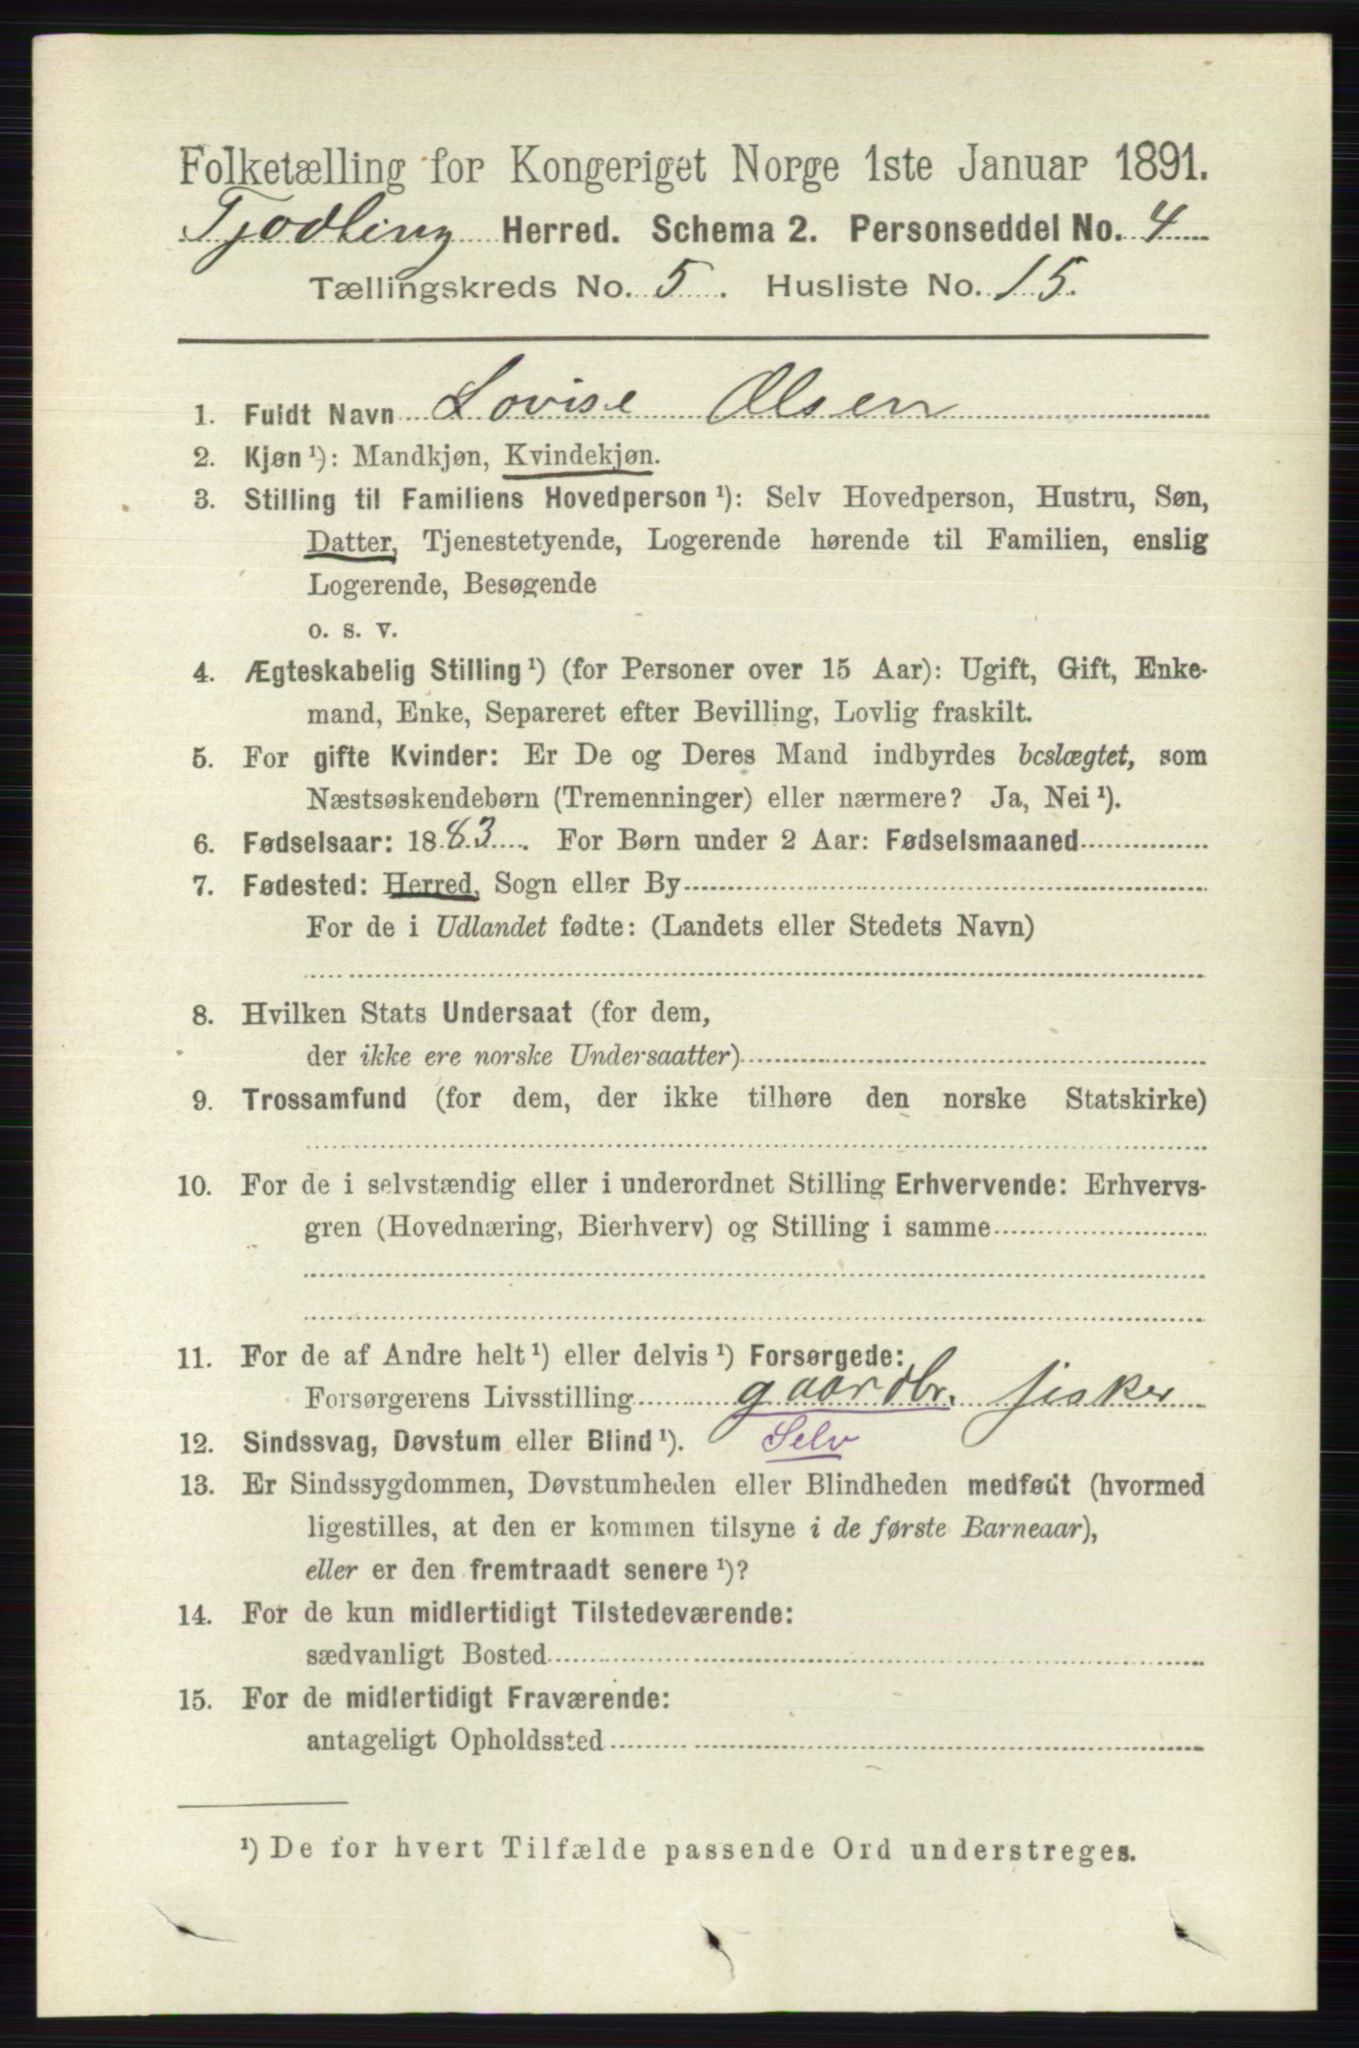 Folketælling for Kongeriget Norge 1ste Januar 1891.
Tjodling Herred. Schema 2. Personseddel No. 4
Tællingskreds No. 5. Husliste No. 15.
1. Fuldt Navn Lovise Olsen
2. Kjøn ¹): Mandkjøn, Kvindekjøn.
3. Stilling til Familiens Hovedperson ¹): Selv Hovedperson, Hustru, Søn,
Datter, Tjenestetyende, Logerende hørende til Familien, enslig
Logerende, Besøgende
o. s. v.
4. Ægteskabelig Stilling ¹) (for Personer over 15 Aar): Ugift, Gift, Enke-
mand, Enke, Separeret efter Bevilling, Lovlig fraskilt.
5. For gifte Kvinder: Er De og Deres Mand indbyrdes beslægtet, som
Næstsøskendebørn (Tremenninger) eller nærmere? Ja, Nei ¹).
6. Fødselsaar: 1883. For Børn under 2 Aar: Fødselsmaaned
7. Fødested: Herred, Sogn eller By
For de i Udlandet fødte: (Landets eller Stedets Navn)
8. Hvilken Stats Undersaat (for dem,
der ikke ere norske Undersaatter)
9. Trossamfund (for dem, der ikke tilhøre den norske Statskirke)
10. For de i selvstændig eller i underordnet Stilling Erhvervende: Erhvervs-
gren (Hovednæring, Bierhverv) og Stilling i samme
11. For de af Andre helt ¹) eller delvis ¹) Forsørgede:
Forsørgerens Livsstilling gaardbr. fisker
12. Sindssvag, Døvstum eller Blind ¹). Selv
13. Er Sindssygdommen, Døvstumheden eller Blindheden medfødt (hvormed
ligestilles, at den er kommen tilsyne i de første Barneaar),
eller er den fremtraadt senere ¹)?
14. For de kun midlertidigt Tilstedeværende:
sædvanligt Bosted
15. For de midlertidigt Fraværende:
antageligt Opholdssted
¹) De for hvert Tilfælde passende Ord understreges.